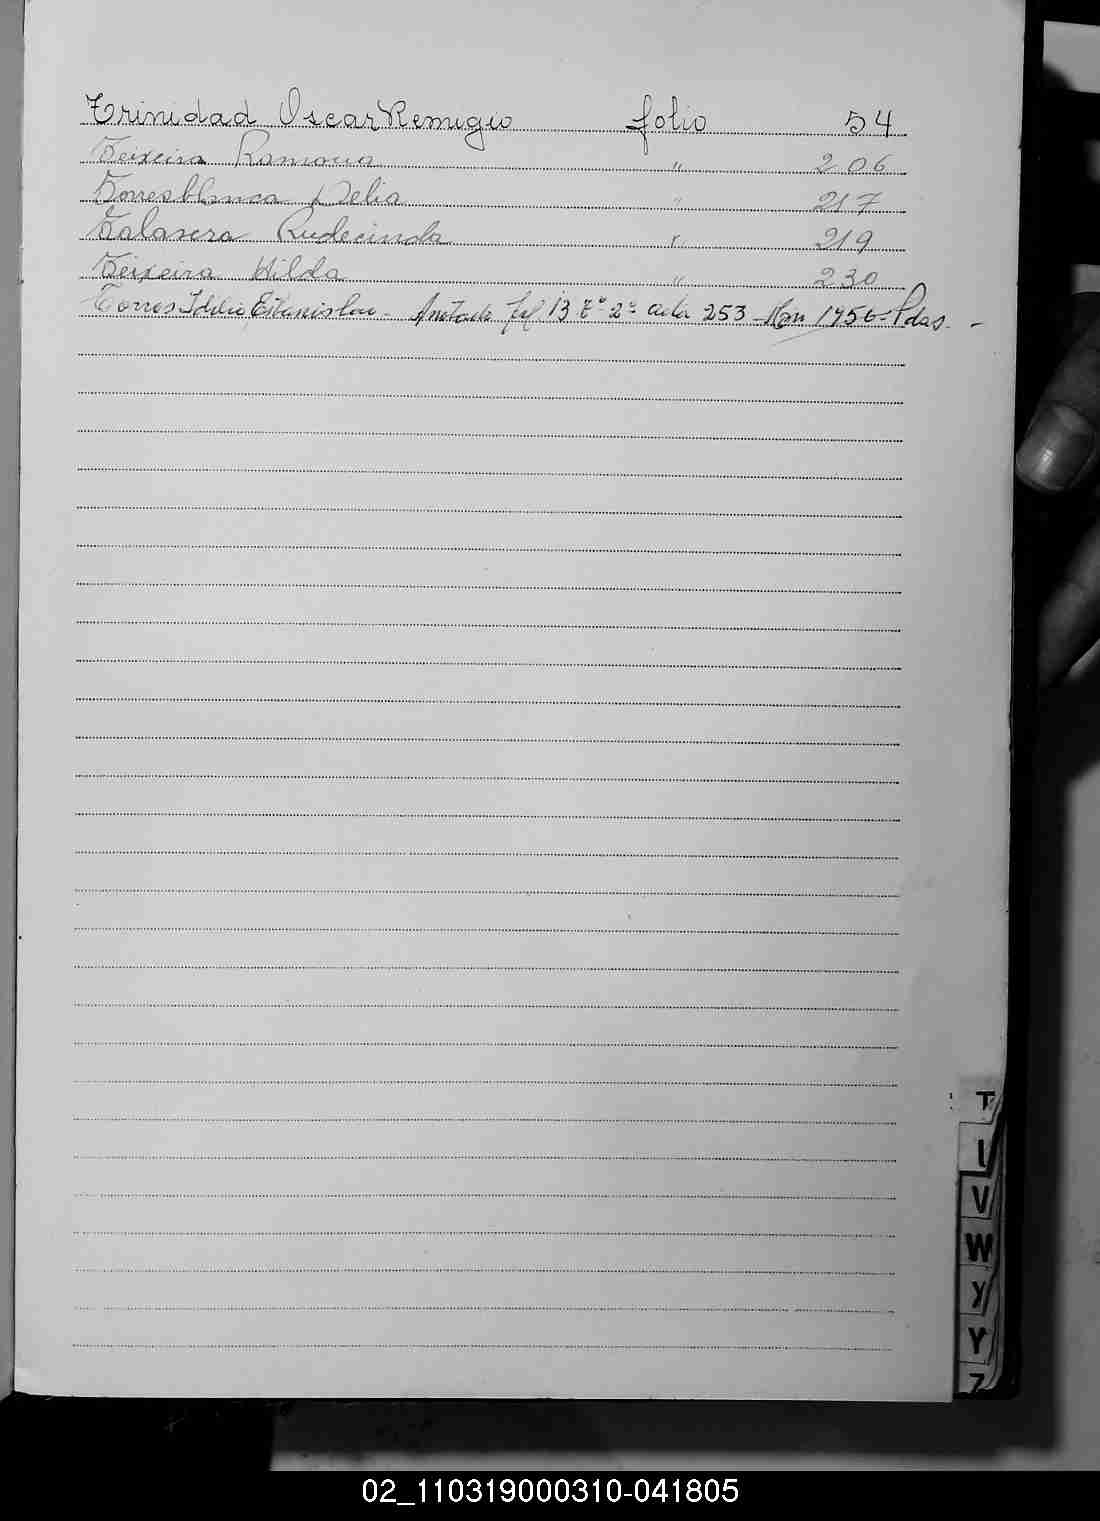 Trinidad Oscar Remigio folio 54
Teixeira Ramona " 206
Torresblanca Delia " 217
Talavera Rudecinda " 219
Teixeira Hilda " 230
Torres Estanislao - Anotado fol 13 Tº 2º acta 253 - 1956 - Pdas. -
T
V
W
Y
Z
02_110319000310-041805